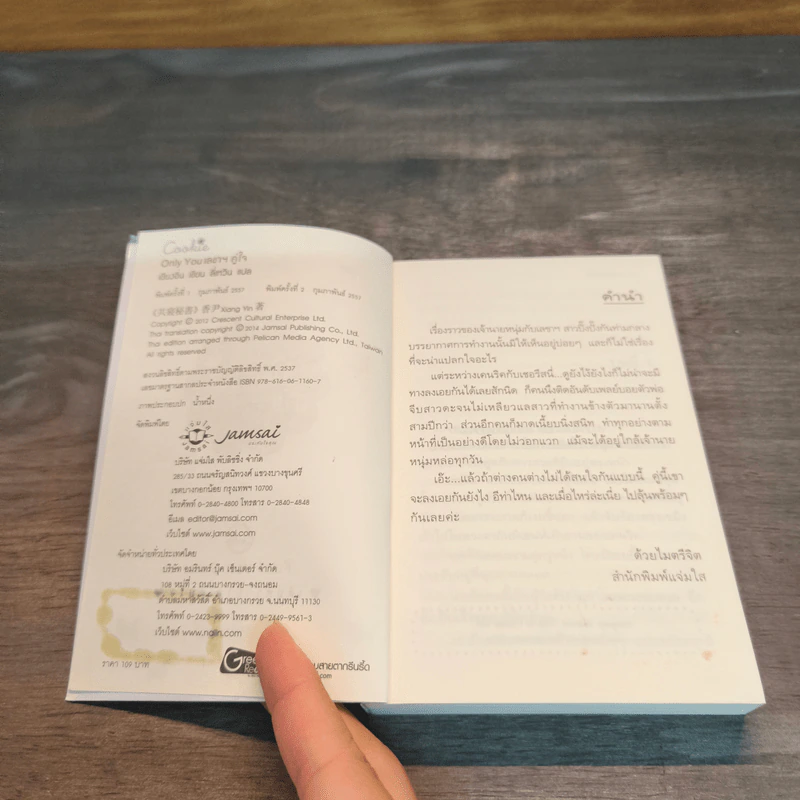 Cookie
Only You เลขาฯ คู่ใจ
เซียงอิ๋น เขียน ลี่หวิน แปล
พิมพ์ครั้งที่ 1 กุมภาพันธ์ 2557 พิมพ์ครั้งที่ 2 กุมภาพันธ์ 2557
香尹 Xiang Yin 著
Copyright © 2012 Crescent Cultural Enterprise Ltd.
Thai translation copyright © 2014 Jamsai Publishing Co., Ltd.
Thai edition arranged through Pelican Media Agency Ltd., Taiwan
All rights reserved
สงวนลิขสิทธิ์ตามพระราชบัญญัติลิขสิทธิ์ พ.ศ. 2537
เลขมาตรฐานสากลประจำหนังสือ ISBN 978-616-06-1160-7
ภาพประกอบปก น้ำหนึ่ง
จัดพิมพ์โดย
jamsai
บริษัท แจ่มใส พับลิชชิ่ง จำกัด
285/33 ถนนจรัญสนิทวงศ์ แขวงบางขุนศรี
เขตบางกอกน้อย กรุงเทพฯ 10700
โทรศัพท์ 0-2840-4800 โทรสาร 0-2840-4848
อีเมล editor@jamsai.com
เว็บไซต์ www.jamsai.com
จัดจำหน่ายทั่วประเทศโดย
บริษัท อมรินทร์ บุ๊ค เซ็นเตอร์ จำกัด
108 หมู่ที่ 2 ถนนบางกรวย-จงถนอม
ตำบลมหาสวัสดิ์ อำเภอบางกรวย จ.นนทบุรี 11130
โทรศัพท์ 0-2423-9999 โทรสาร 0-2449-9561-3
เว็บไซต์ www.naiin.com
ราคา 109 บาท
Gree
สายตากรีนรี้ด
.com
คำนำ
เรื่องราวของเจ้านายหนุ่มกับเลขาฯ สาวปิ๊งปั๊งกันท่ามกลาง
บรรยากาศการทำงานนั้นมีให้เห็นอยู่บ่อยๆ และก็ไม่ใช่เรื่อง
ที่จะน่าแปลกใจอะไร
แต่ระหว่างเคนริคกับเชอรีสนี่...ดูยังไงยังไงก็ไม่น่าจะมี
ทางลงเอยกันได้เลยสักนิด ก็คนนึงติดอันดับเพลย์บอยตัวพ่อ
จีบสาวดะจนไม่เหลียวแลสาวที่ทำงานข้างตัวมานานตั้ง
สามปีกว่า ส่วนอีกคนก็มาดเนี้ยบนิ่งสนิท ทำทุกอย่างตาม
หน้าที่เป็นอย่างดีโดยไม่วอกแวก แม้จะได้อยู่ใกล้เจ้านาย
หนุ่มหล่อทุกวัน
เอ๊ะ...แล้วถ้าต่างคนต่างไม่ได้สนใจกันแบบนี้ คู่นี้เขา
จะลงเอยกันยังไง อีท่าไหน และเมื่อไหร่ล่ะเนี่ย ไปลุ้นพร้อมๆ
กันเลยค่ะ
ด้วยไมตรีจิต
สำนักพิมพ์แจ่มใส